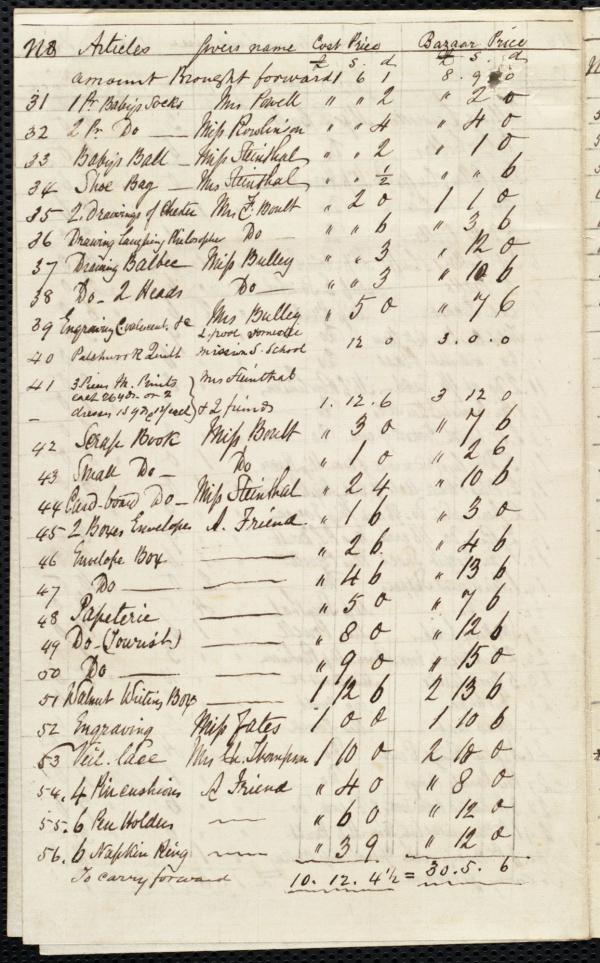 No Articles Givers name Cost Price Bazaar Price
£ s. d £ s. d
amount Brought forward 1 6 1 8. 9. 0
31 1 Pr Babys Socks Mrs Powell " " 2 " 2 0
32 2 Pr Do — Miss Rowlinson " " 4 " 4 0
33 Babys Ball — Miss Steinthal " " 2 " 1 0
34 Shoe Bag — Mrs Steinthal " " ½ " " 6
35 2. Drawings of Chester Mrs F. Boult " 2 0 1 1 0
36 Drawing Laughing Philosopher Do " " 6 " 3 6
37 Drawing Balbec Miss Bulley " " 3 " 12 0
38 Do - 2 Heads Do — " " 3 " 10 6
39 Engraving &c Mrs Bulley " 5 0 " 7 6
40 Patchwork Quilt 2 poor Mission S. School 12 0 3. 0. 0
41 3 Pieces M. Prints Mrs Steinthal
each 26 yds. or 2
dresses 13 yds each & 2 friends 1. 12. 6 3 12 0
42 Scrap Book Miss Boult " 3 0 " 7 6
43 Small Do — Do " 1 0 " 2 6
44 Card-board Do — Miss Steinthal " 2 4 " 10 6
45 2 Boxes Envelopes A. Friend " 1 6 " 3 0
46 Envelope Box —— " 2 6 " 4 6
47 Do — —— " 4 6 " 13 6
48 Papeterie —— " 5 0 " 7 6
49 Do - (Tourist) —— " 8 0 " 12 6
50 Do — —— " 9 0 " 15 0
51 Walnut Writing Box —— 1 12 6 2 13 6
52 Engraving Miss Yates 1 0 0 1 10 6
53 Veil. lace Mrs H. Thompson 1 10 0 2 10 0
54. 4 Pincushions A Friend " 4 0 " 8 0
55. 6 Pen Holders — " 6 0 " 12 0
56. 6 Napkin Ring — " 3 9 " 12 0
To carry forward 10. 12. 4½ = 30. 5. 6